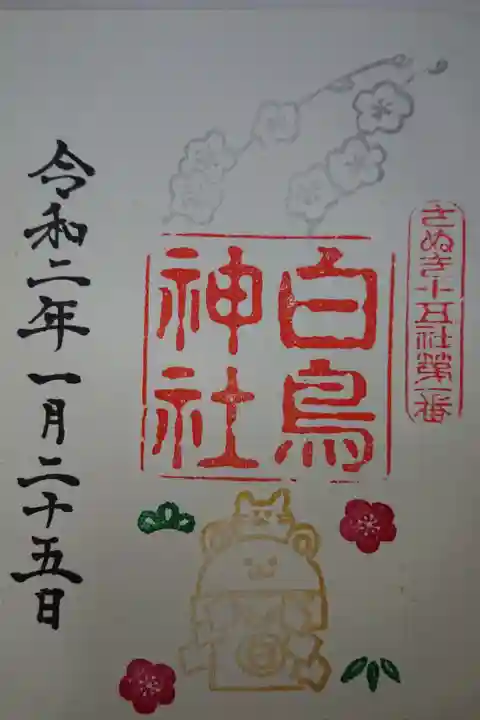 さぬき十五社第一番
白鳥
神社
令和二年一月二十五日